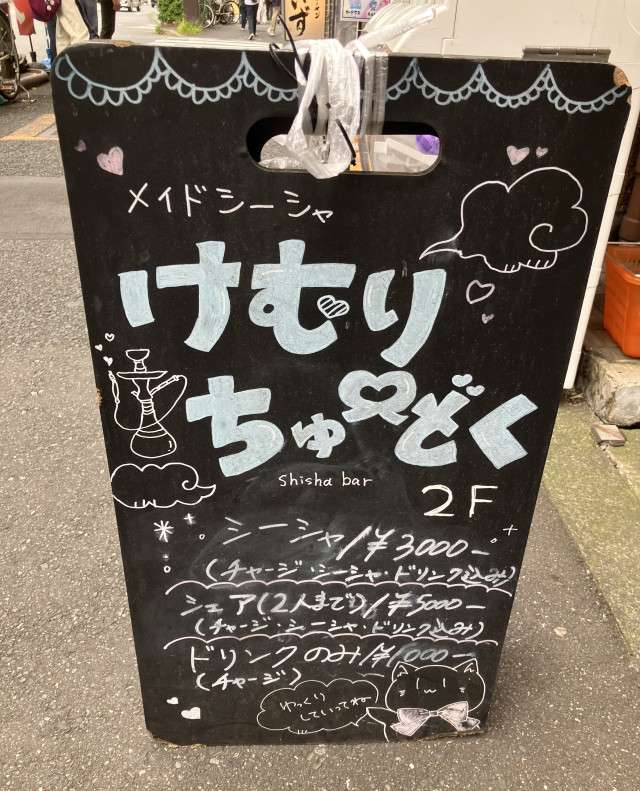 メイドシーシャ
けむり
ちゅ〜どく
shisha bar
2F
シーシャ/¥3000-
(チャージ・シーシャ・ドリンク込み)
シェア(2人まで)/¥5000-
(チャージ・シーシャ・ドリンク込み)
ドリンクのみ/¥1000-
(チャージ)
ゆっくり
していってね